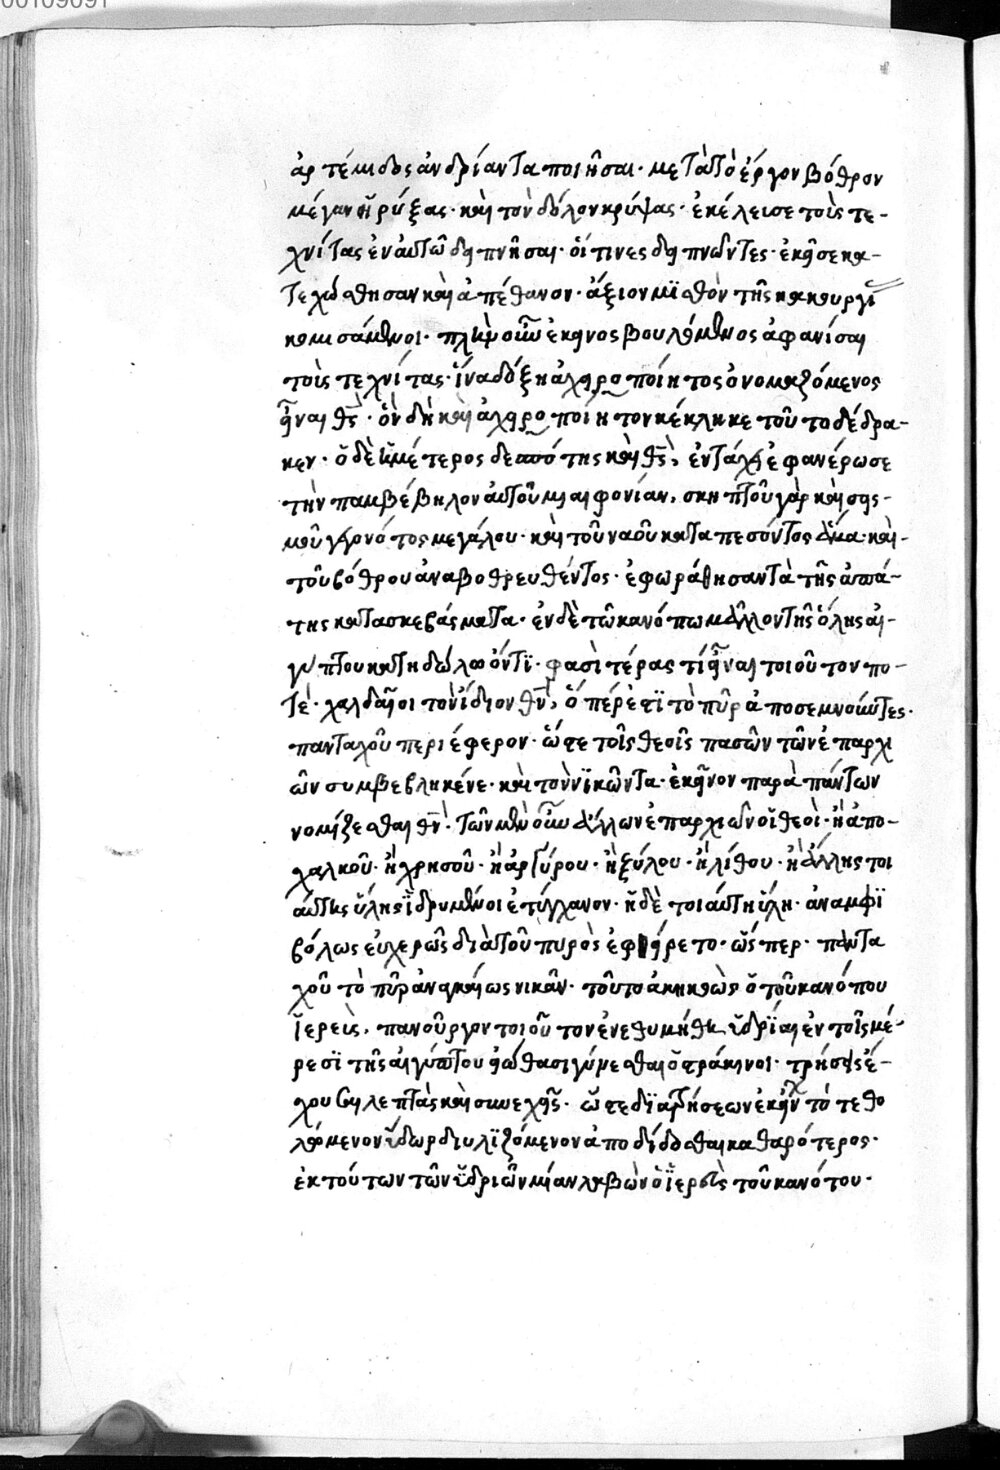 ἀρτέμιδος ἀνδρίαντα ποιῆσαι· μετὰ τὸ ἔργον βόθρον
μέγαν ὀρύξας· καὶ τὸν δόλον κρύψας· ἐκέλεισε τοὺς τε-
χνίτας ἐν αὐτῶ δειπνῆσαι· οἵ τινες δειπνῶντες· ἐκεῖσε κα-
τεχώσθησαν καὶ ἀπέθανον· ἄξιον μϊσθὸν τῆς κακουργί
κομισάμενοι· πλὴν οὖν ἐκεῖνος βουλόμενος ἀφανίσαι
τοὺς τεχνίτας· ἵνα δόξη ἀχειροποίητος ὀνομαζόμενος
εἶναι θς̅· ὃν δὴ καὶ ἀχειροποίητον κέκληκε τοῦτο δέδρα-
κεν· ὁ δὲ ἡμέτερος δεσπότης καὶ θς̅, ἐν τάχει ἐφανέρωσε
τὴν παμβέβηλον αὐτοῦ μιαιφονίαν, σκηπτοῦ γὰρ καὶ σεισ-
μοῦ γεγονότος μεγάλου· καὶ τοῦ ναοῦ καταπεσόντος ἅμα· καὶ-
τοῦ βόθρου ἀναβοθρευθέντος· ἐφωράθησαν τὰ τῆς ἀπά-
της κατασκεβάσματα· ἐν δὲ τῶ κανόπω μᾶλλον τῆς ὅλης αἰ-
γύπτου κατηδώλω ὄντϊ· φασὶ τέρας τί εἶναι τοιοῦτον πο-
τέ· χαλδαῖοι τὸν ἴδιον θν̅, ὅπέρ ἐστϊ τὸ πῦρ ἀποσεμνοῦντες·
πανταχοῦ περιέφερον· ὥστε τοῖς θεοῖς πασῶν τῶν ἐπαρχι
ῶν συμβεβληκένε· καὶ τὸν νϊκῶντα· ἐκεῖνον παρὰ πάντων
νομίζεσθαι θν̅· τῶν μὲν οὖν ἄλλων ἐπαρχιῶν οἱ θεοὶ· ἢ ἀπο-
χαλκοῦ· ἢ χρησοῦ· ἢ ἀργύρου· ἢ ξύλου· ἢ λίθου· ἢ ἄλλης τοι
αύτης ὕλης ἱδρυμένοι ἐτύγχανον· ἡ δὲ τοιαύτη ὕλη· ἀναμφϊ
βόλως εὐχερῶς διὰ τοῦ πυρὸς ἐφθείρετο· ὥσπερ· πάντα
χοῦ τὸ πῦρ ἀναγκαίως νικᾶν· τοῦτο ἀκηκοὼς ὁ τοῦ κανόπου
ἱερεὺς, πανοῦργον τοιοῦτον ἐνεθυμήθη, ὑδρϊαι ἐν τοῖς μέ-
ρεσϊ τῆς αἰγύπτου εἰώθασι γίνεσθαι ὀστράκινοι· τρήσεις ἔ-
χουσαι λεπτὰς καὶ συνεχεῖς· ὥστε δϊα τρήσεων ἐκείνων τὸ τεθο
λωμένον ὕδωρ διυλϊζόμενον ἀποδίδοσθαι καθαρότερος·
ἐκ τούτων τῶν ὑδριῶν μίαν λαβὼν ὁ ἱερεὺς τοῦ κανότου·